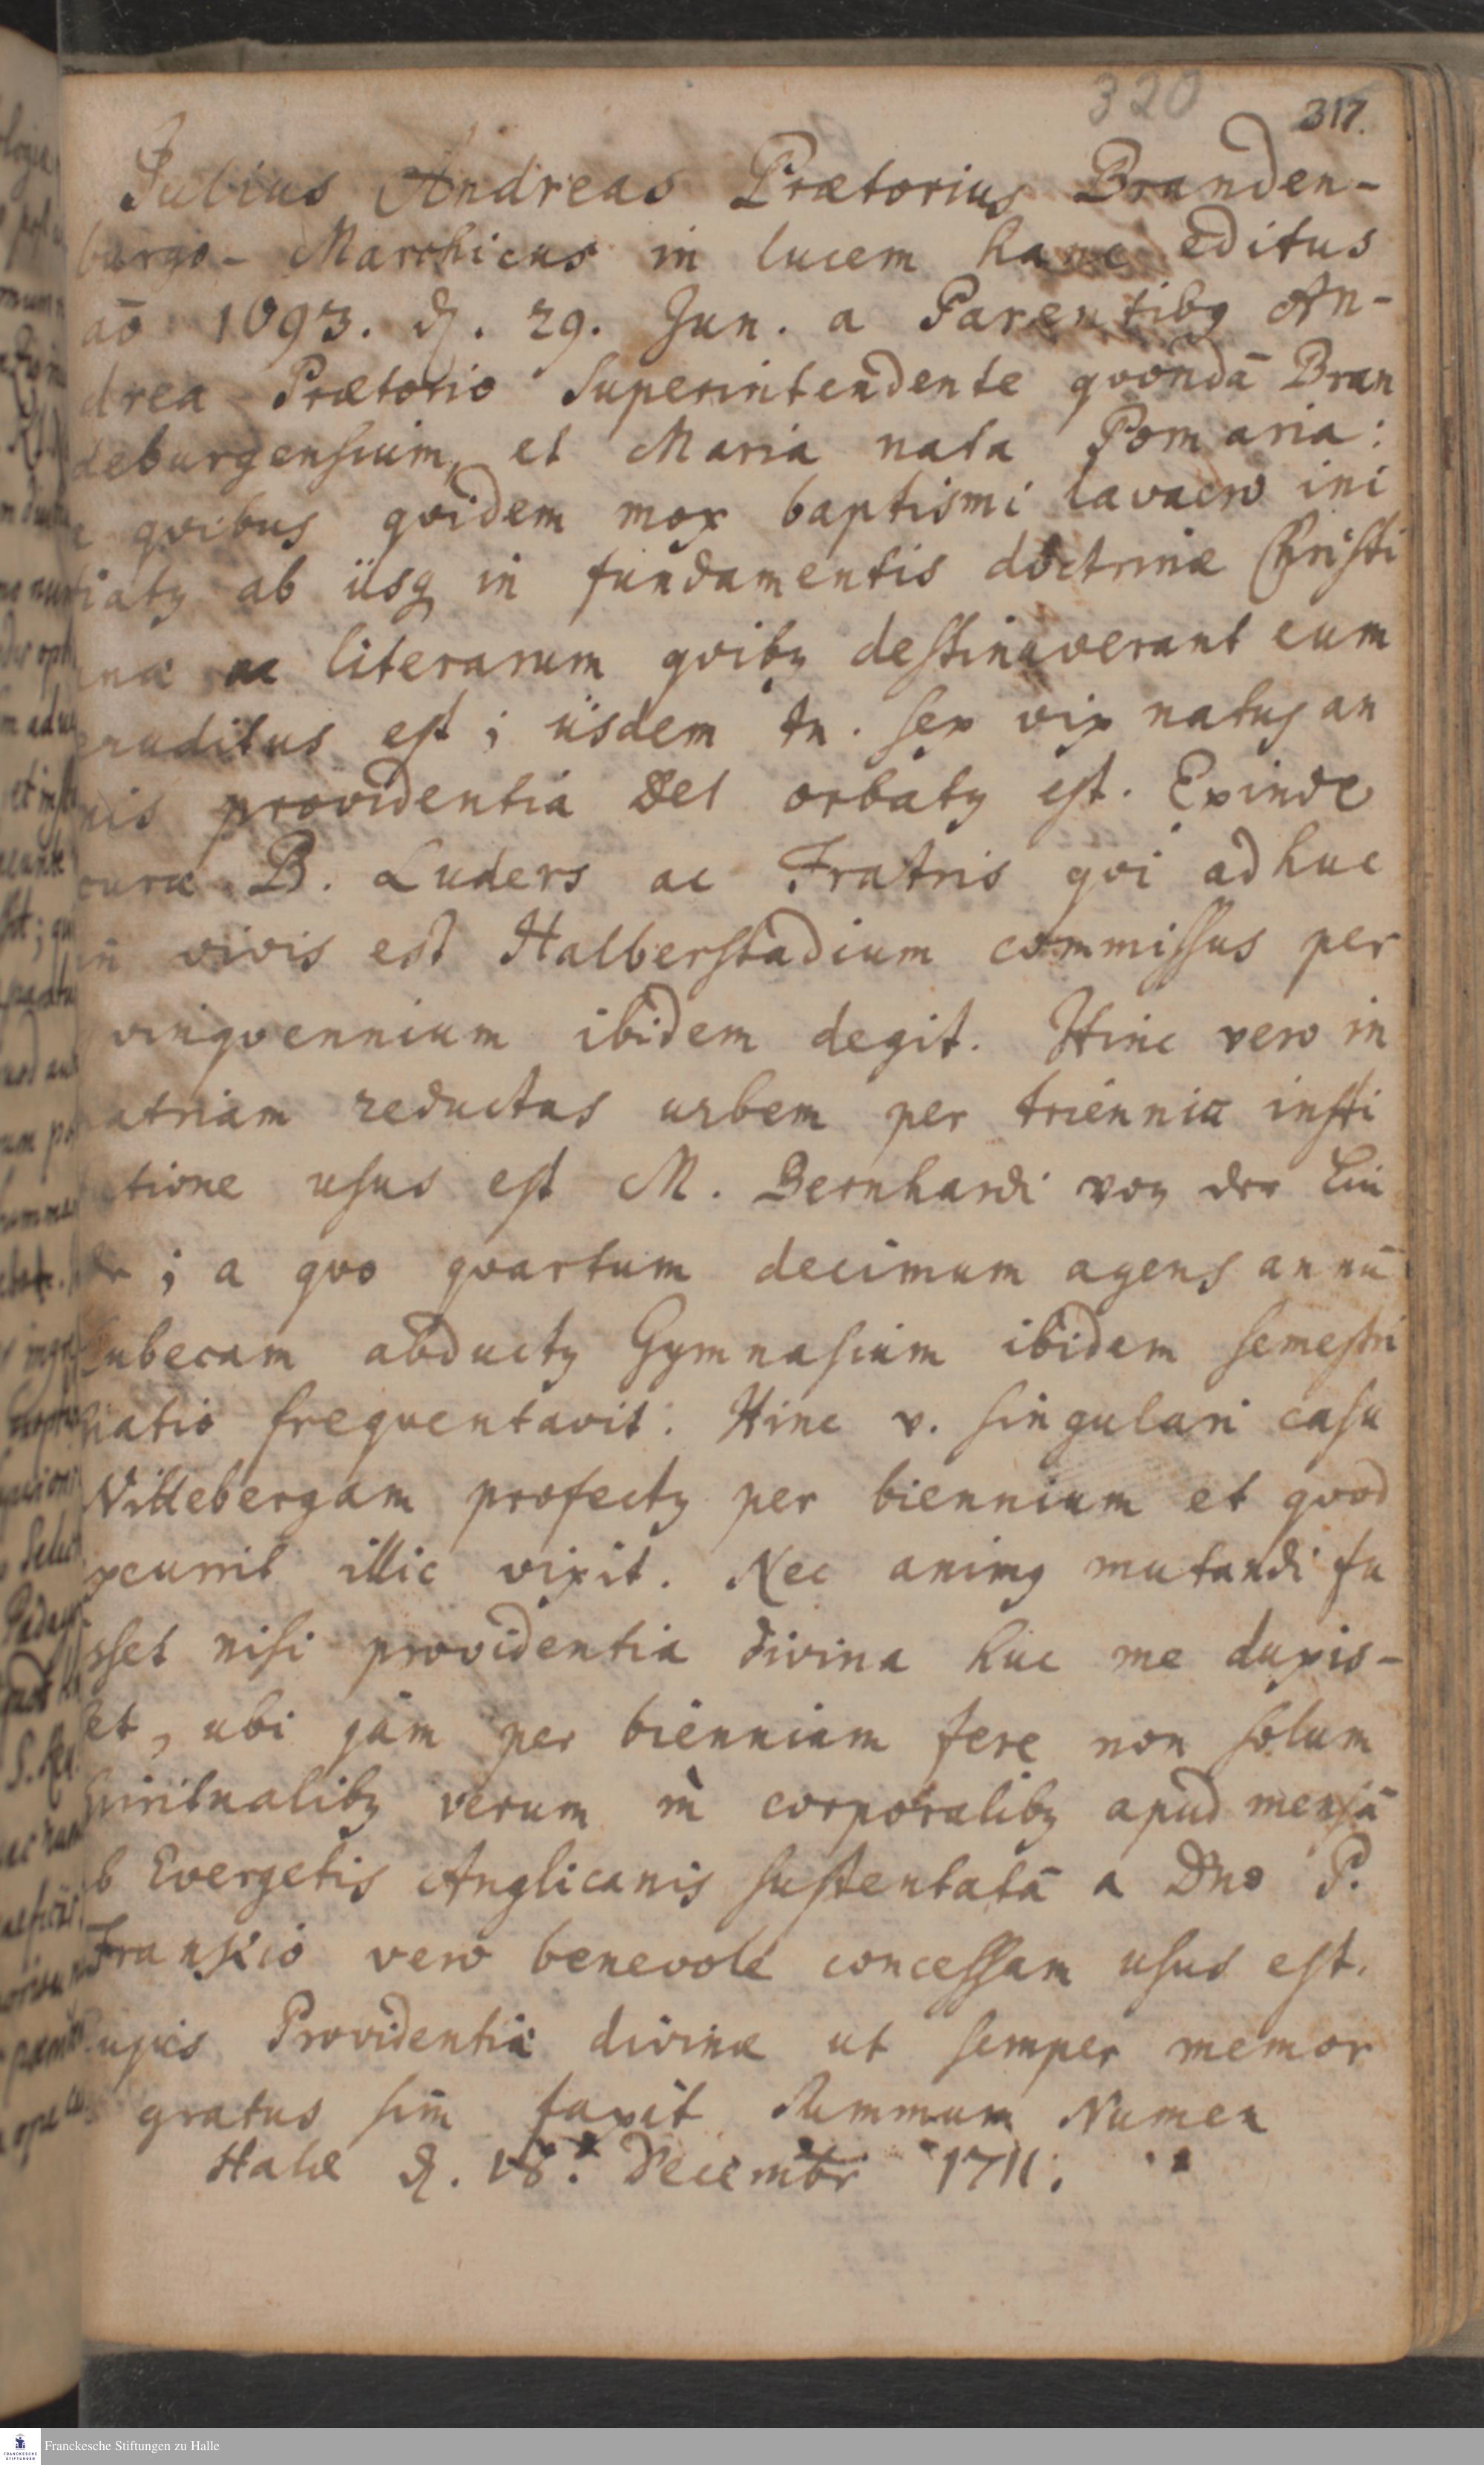 320
317.
Julius Andreas Prætorius Branden-
burgo-Marchicus in lucem hanc editus
aō 1693. d. 29. Jun. a Parentibꝫ An-
drea Prætorio Superintendente qvondā Bran
deburgensium, et Maria nata Pomaria:
a qvibus qvidem mox baptismi lavacro ini
tiatꝫ ab iisqꝫ in fundamentis doctrinæ Christi
anæ ac literarum qvibꝫ destinaverant eum
eruditus est; iisdem tn. sex vix natus an
nis providentia Dei orbatꝫ est. Exinde
curæ B. Luders ac Fratris qvi adhuc
in vivis est Halberstadium commissus per
qvinqvennium ibidem degit. Hinc vero in
patriam reductus urbem per trienniū insti
tutione usus est M. Bernhardi von der Lin
de; a qvo qvartum decimum agens annū
Lubecam abductꝫ Gymnasium ibidem semestri
spatio freqventavit: Hinc v. singulari casu
Wittebergam profectꝫ per biennium et qvod
excurrit illic vixit. Nec animꝫ mutandi fu
isset nisi providentia divina huc me duxis-
set, ubi jam per biennium fere non solum
spiritualibꝫ verum in corporalibꝫ apud mensā
ab Evergetis Anglicanis sustentatā a Dno P.
Franckio vero benevole concessam usus est.
Cujus Providentiæ divinæ ut semper memor
gratus sim faxit summum Numen
Halæ d. 18. Decembr 1711.
Franckesche Stiftungen zu Halle